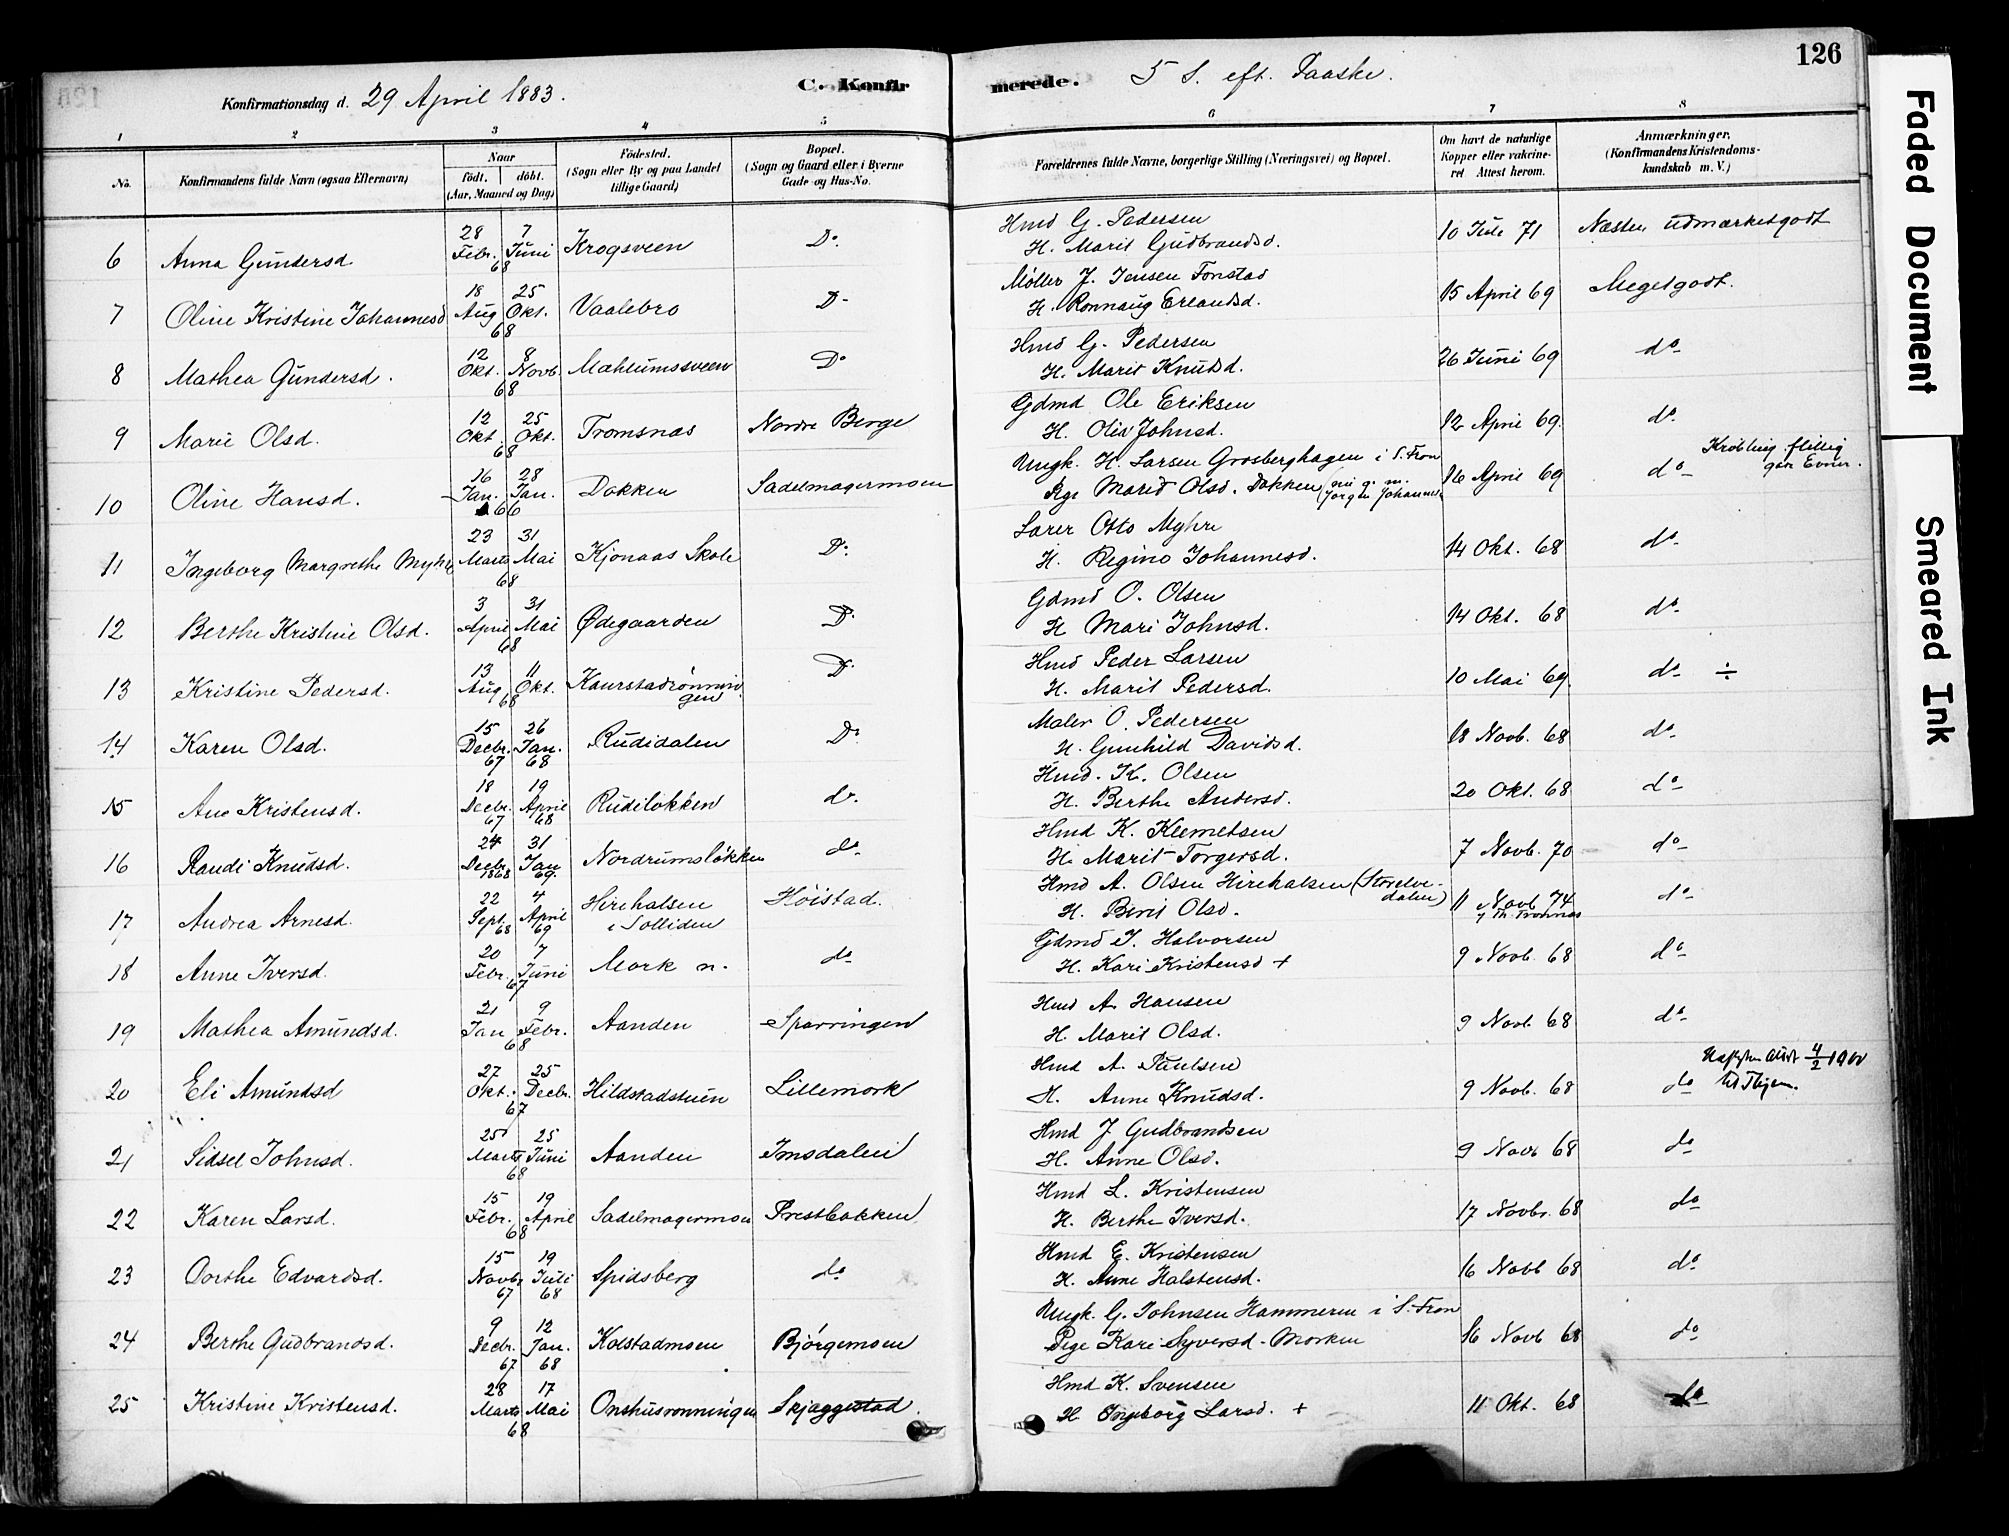 126
Konfirmationsdag d. 29 April 1883.
C. Konfirmerede.
5 S. eft. Paaske.
1 2 3 4 5 6 7 8
No.
Konfirmandens fulde Navn (ogsaa Efternavn)
Naar
født. døbt.
(Aar, Maaned og Dag)
Fødested.
(Sogn eller By og paa Landet
tillige Gaard)
Bopæl.
(Sogn og Gaard eller i Byerne
Gade og Hus-No.
Forældrenes fulde Navne, borgerlige Stilling (Næringsvei) og Bopæl.
Om havt de naturlige
Kopper eller vakcine-
ret Attest herom.
Anmærkninger.
(Konfirmandens Kristendoms-
kundskab m. V.)
6 Anna Gundersd. 28 Febr. 7 Juni 68 Krogsveen Do. Hmd G. Pedersen
H. Marit Gudbrandsd. 10 Juli 71 Næsten udmærketgodt
7 Oline Kristine Johannesd 18 Aug 25 Okt. 68 Vaalebro D- Møller J. Jensen Fonstad
H. Rønnaug Erlandsd. 15 April 69 Megetgodt.
8 Mathea Gundersd. 12 Okt. 8 Novb 68 Mæhlumssveen Do Hmd G. Pedersen
H. Marit Knudsd. 26 Juni 69 do
9 Marie Olsd. 12 Okt. 25 Okt. 68 Tromsnæs Nordre Berge Gdmd Ole Eriksen
H. Olia Johnsd. 12 April 69. do
10 Oline Hansd. 16 Jan. 28 Jan. 66 Dokken Sadelmagermoen Ungk. H. Larsen Grosberghagen i S. Fron
Pge Marit Olsd. Dokken 16 April 69 do Krøbling flittig
gode Evner.
11 Ingeborg Margrethe Myhre 23 Marts 31 Mai 68 Kjønaas Skole Do Lærer Otto Myhre
H. Regine Johannesd. 14 Okt. 68 do
12 Berthe Kristine Olsd. 3 April 31 Mai 68 Ødegaarden Do Gdmd O. Olsen
H Mari Johnsd. 14 Okt. 68 do
13 Kristine Pedersd. 13 Aug 11 Okt. 68 Kaurstadrønnin
gen Do Hmd Peder Larsen
H. Marit Pedersd. 10 Mai 69. do ÷
14 Karen Olsd. 15 Decbr. 67 26 Jan. 68 Rudidalen Do Maler O. Pedersen
H. Gunhild Davidsd. 18 Novb. 68 do
15 Ane Kristensd. 18 Decbr. 67 19 April 68 Rudiløkken do. Hmd. K. Olsen
H. Berthe Andersd. 20 Okt. 68 do
16 Randi Knudsd. 24 Decbr. 1868 31 Jan 69. Nordrumsløkken do Hmd K. Klemetsen
H. Marit Torgersd. 7 Novb. 70 do
17 Andrea Arnesd. 22 Sept. 68 4 April 69 Hirehalsen
i Solliden Høistad. Hmd A. Olsen Hirehalsen (Storelve-
dalen)
H. Berit Olsd. 11 Novb 74 do
18 Anne Iversd. 20 Febr. 7 Juni 67 Mork n. do Gdmd I. Halvorsen
H. Kari Kristensd + 9 Novb. 68 do
19 Mathea Amundsd. 21 Jan 9 Febr. 68 Aanden Sparringen Hmd A. Hansen
H. Marit Olsd. 9 Novb. 68 do
20 Eli Amundsd 27 Okt. 25 Decbr. 67 Hildstadstuen Lillemork Hmd A. Paulsen
H. Anne Knudsd. 9 Novb. 68 do 4/2 1900
21 Sidsel Johnsd. 25 Marts 25 Juni 68 Aanden Imsdalen Hmd J Gudbrandsen
H. Anne Olsd. 9 Novb 68 do
22 Karen Larsd. 15 Febr. 19 April 68 Sadelmagermoen Prestbakken Hmd L. Kristensen
H. Berthe Iversd. 17 Novbr. 68 do
23 Dorthe Edvardsd. 15 Novb. 67 19 Juli 68 Spidsberg do Hmd E. Kristensen
H. Anne Halstensd. 16 Novb 68 do
24 Berthe Gudbrandsd. 9 Decbr. 67 12 Jan. 68 Kolstadmoen Bjørgemoen Ungk. G. Johnsen Hammeren i S. Fron
Pige Kari Syversd-Morken 16 Novb 68 do
25 Kristine Kristensd. 28 Marts 17 Mai 68 Onshusrønningen Skjæggestad Hmd K. Svensen
H Ingeborg Larsd. + 11 Okt. 68 do
Faded Document
Smeared Ink